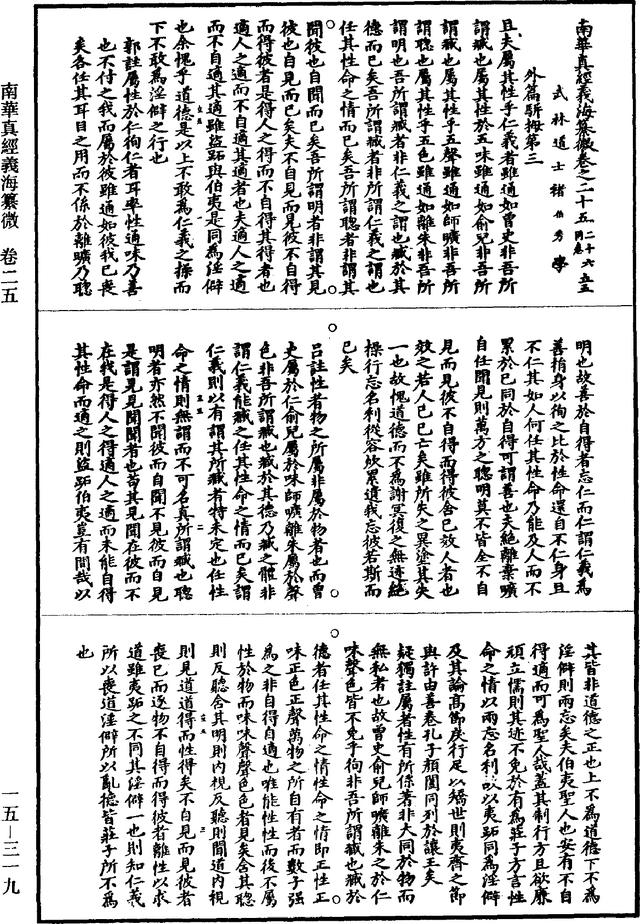 南華真經義海纂微卷之二十五 二十六同卷
武林道士褚伯秀學
外篇駢拇第三
且夫屬其性乎仁義者雖通如曾史非吾所
謂臧也屬其性於五味雖通如俞兒非吾所
謂臧也屬其性乎五聲雖通如師曠非吾所
謂聰也屬其性乎五色雖通如離朱非吾所
謂明也吾所謂臧者非仁義之謂也臧於其
德而已矣吾所謂臧者非所謂仁義之謂也
任其性命之情而已矣吾所謂聰者非謂其
聞彼也自聞而已矣吾所謂明者非謂其見
彼也自見而已矣夫不自見而見彼不自得
而得彼者是得人之得而不自得其得者也
適人之適而不自適其適者也夫適人之適
而不自適其適雖盜跖與伯夷是同為淫僻
也余愧乎道德是以上不敢為仁義之操而
下不敢為淫僻之行也
郭註屬性於仁徇仁者耳率性通味乃善
也不付之我而屬於彼雖通如彼我已喪
矣各任其耳目之用而不係於離曠乃聰
明也故善於自得者忘仁而仁謂仁義為
善捐身以徇之比於性命還自不仁身且
不仁其如人何任其性命乃能及人而不
累於己同於自得可謂善也夫絕離棄曠
自任聞見則萬方之聰明莫不皆全不自
見而見彼不自得而得彼舍己效人者也
效之若人己已亡矣雖所失之異塗其失
一也故愧道德而不為謝冥復之無迹絕
操行忘名利從容吹累遺我忘彼若斯而
已矣
呂註性者物之所屬非屬於物者也而曾
史屬於仁俞兒屬於味師曠離朱屬於聲
色非吾所謂臧也臧於其德乃臧之體非
謂仁義能臧之任其性命之情而已矣謂
仁義則以有謂其所臧者特未定也任性
命之情則無謂而不可名真所謂臧也聰
明者亦然不聞彼而自聞不見彼而自見
是謂見見聞聞者也苟其見聞在彼而不
在我是得人之得適人之適而未能自得
其性命而適之則盜跖伯夷豈有間哉以
其皆非道德之正也上不為道德下不為
淫僻則兩忘矣夫伯夷聖人也安有不自
得適而可為聖人哉蓋其制行方且欲廉
頑立懦則其迹不免於有為莊子方言性
命之情以兩忘名利故以夷跖同為淫僻
及其論高節戾行足以矯世則夷齊之節
與許由善卷孔子顏闔同列於讓王矣
疑獨註屬者性有所係著非大同於物而
無私者也故曾史俞兒師曠離朱之於仁
味聲色皆不免乎徇非吾所謂臧也臧於
德者任其性命之情性命之情即正性正
味正色正聲萬物之所自有者而數子強
為之非自得自適也唯能性性而後不屬
性於物而味味聲聲色色者見矣舍其聰
則反聽舍其明則內視反聽則聞道內視
則見道道得而性得矣不自見而見彼者
喪己而逐物不自得而得彼者離性以求
道雖夷跖之不同其淫僻一也則知仁義
所以喪道淫僻所以亂德皆莊子所不為
也
南華真經義海纂微 卷二五
一五—三一九